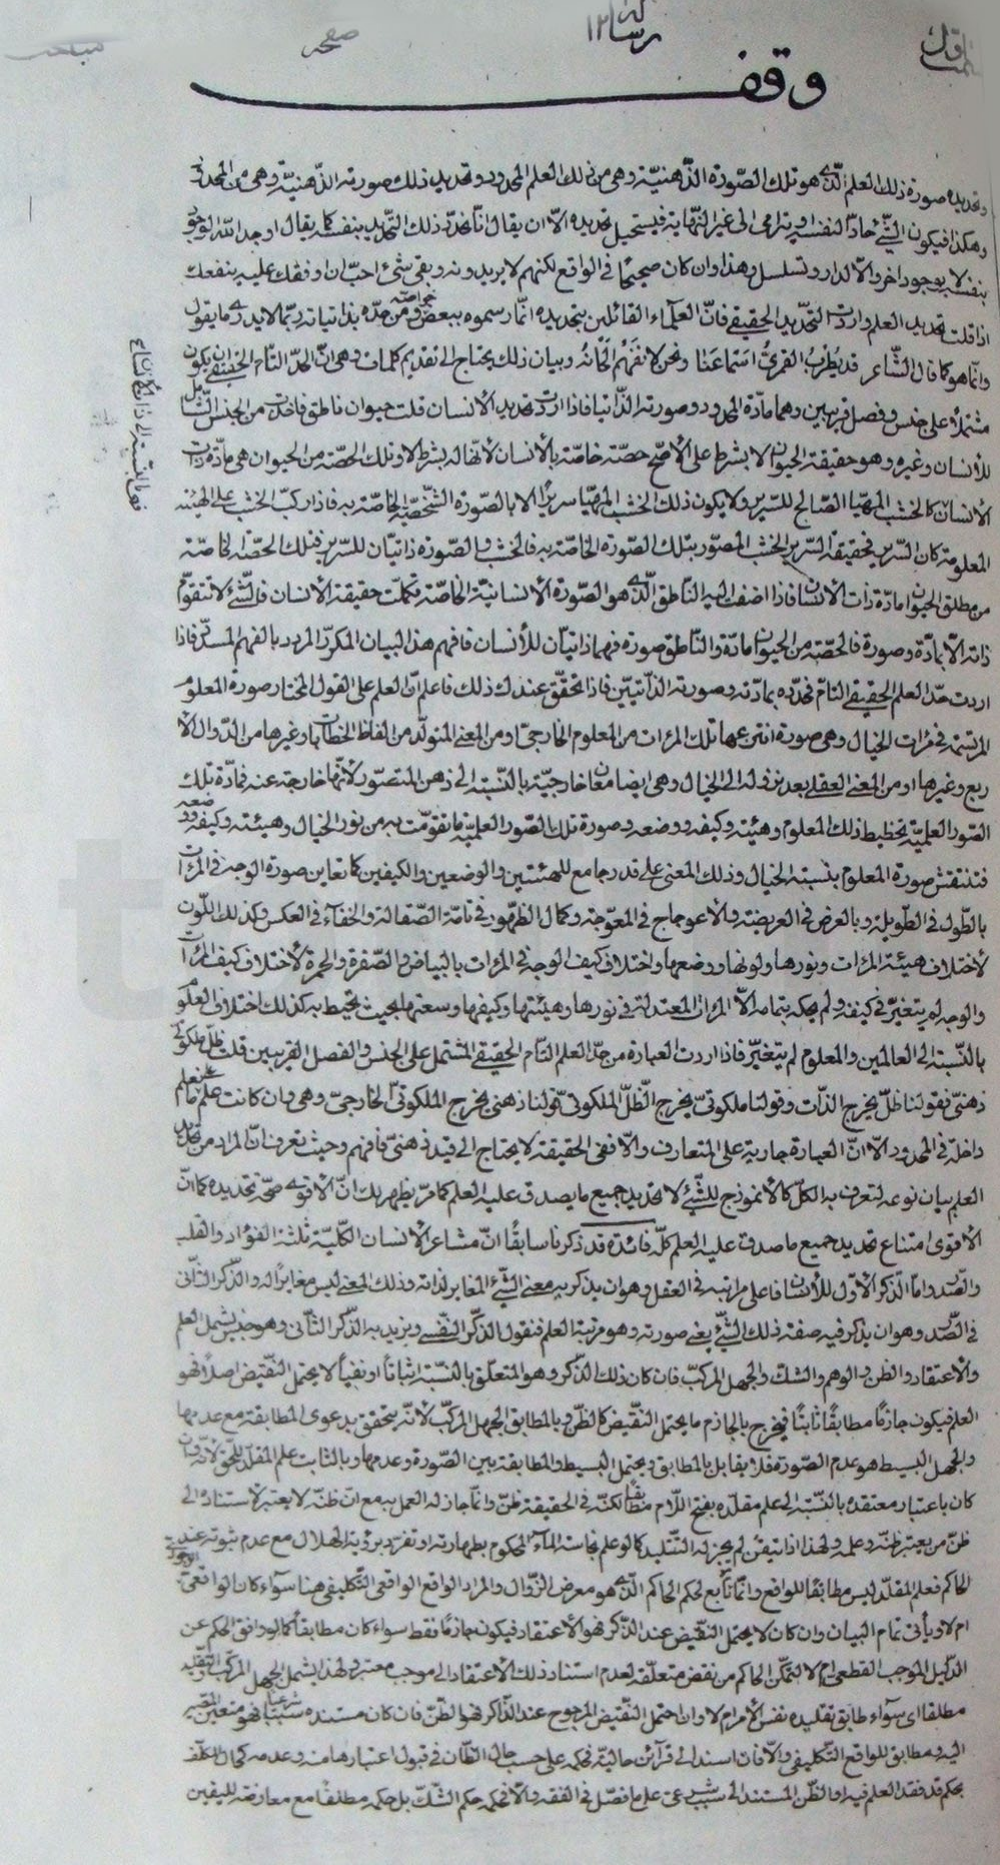 رسالة ١٢
صفحه
وقف
وتحديده صورة ذلك العلم الذى هو تلك الصّورة الذّهنيّة وهى من ذلك العلم المحدود وتحديد ذلك صورته الذّهنيّة وهى من المحدود
وهكذا فيكون الشّئ حادّا لنفسه او يترامى الى غير النّهاية فيستحيل تحديده الّا ان يقال انّا نحدّ ذلك التّحديد بنفسه كما يقال اوجد اللّه الوجود
بنفسه لا بوجود اخر والّا لدار وتسلسل وهذا وان كان صحيحًا فى الواقع لكنهم لا يريدونه وبقى شئ احبّ ان اوقفك عليه ينفعك
اذا قلت تحديد العلم واردت التّحديد الحقيقى فانّ العلمآء القائلين بتحديده انّما رسموه ببعض خواصّه ومن حدّه بذاتياته ربّما لا يدرى ما يقول
وانّما هو كما قال الشّاعر قد يُطْرِبُ القمرىُّ اسماعَنا ونحن لا نفهَمُ الحانَهُ وبيان ذلك يحتاج الى تقديم كلمات وهى انّ الحدّ التّام الحقيقى ان يكون
مشتملًا على جنس وفصل قريبين وهما مادّة المحدود وصورته الذّاتيا فاذا اردت تحديد الانسان قلت حيوان ناطق فاخذت من الجنس الشّامل
للأنسان وغيره وهو حقيقة الحيوان لا بشرط على الأصحّ حصّة خاصّة بالأنسان لأنّها له بشرط لا وتلك الحصّة من الحيوان هى مادّة ذات
الأنسان كالخشب المهيّا الصّالح للسّرير ولا يكون ذلك الخشب المهيّا سريرًا الا بالصّورة الشّخصيّة الخاصّة به فاذا ركبّ الخشب على الهيئة
المعلومة كان السّرير فحقيقة السّرير الخشب المصوّر بتلك الصّورة الخاصّة به فالخشب والصّورة ذاتيّان للسّرير فتلك الحصّة الخاصّة
من مطلق الحيوان مادّة ذات الأنسان فاذا اضفت اليه النّاطق الّذى هو الصّورة الأنسانيّة الخاصّة تكملت حقيقة الأنسان فالشّئ لا تتقوّم
ذاته الّا بمادّة وصورة فالحصّة من الحيوان مادّة والنّاطق صورة فهما ذاتيّان للأنسان فافهم هذا البيان المكرّر المردد بالفهم المسدّد فاذا
اردت حدّ العلم الحقيقى التامّ فحدّده بمادّته وصورته الذّاتيّين فاذا تحقّق عندك ذلك فاعلم انّ العلم على القول المختار صورة المعلوم
المرتسمة فى مرات الخيال وهى صورة انتزعها تلك المرات من المعلوم الخارجىّ او من المعنى المتولّد من الفاظ الخطابات وغيرها من الدّوال الأ
ربع وغيرها او من المعنى العقلى بعد نزوله الى الخيال وهى ايضا معان خارجيّة بالنّسبة الى ذهن المتصوّر لأنّها خارجة عنه فمادّة تلك
الصّور العلميّة تخطيط ذلك المعلوم وهيئته وكيفه ووضعه وصورة تلك الصّور العلميّة ما تقوّمت به من نور الخيال وهيئته وكيفه ووضعه
فتنتقش صورة المعلوم بنسبة الخيال وذلك المعنى على قدر جامع للهيئتين والوضعين والكيفين كما تعاين صورة الوجه فى المرات
بالطّول فى الطّويلة وبالعرض فى العريضة والأعوجاج فى المعوّجة وكمال الظّهور فى تامّة الصّقالة والخفآء فى العكس وكذلك اللّون
لأختلاف هيئة المرات ونورها ولونها ووضعها واختلاف كيف الوجه فى المرات بالبياض والصّفرة والحمرة لأختلاف كيف المرات
والوجه لم يتغيّر فى كيفه ولم يحكه بتمامه الّا المرات المعتدلة فى نورها وهيئتها وكيفها وسعتها بحيث تحيط به كذلك اختلاف العلوم
بالنّسبة الى العالمين والمعلوم لم يتغيّر فاذا اردت العبارة من حدّ العلم التّام الحقيقى المشتمل على الجنس والفصل القريبين قلت ظلّ ملكوتىّ
ذهنىّ فقولنا ظلّ يخرج الذّات وقولنا ملكوتىّ يخرج الظّلّ الملكوتى وقولنا ذهنى يخرج الملكوتىّ الخارجىّ وهى وان كانت
داخلة فى المحدود الّا انّ العبارة جارية على المتعارف والّا ففى الحقيقة لا يحتاج الى قيد ذهنىّ فافهم وحيث تعرف انّ المراد من تحديد
العلم بيان نوعه لتعرف به الكلّ كالأنموذج للشّئ لا تحديد جميع ما يصدق عليه العلم كما مرّ يظهر لك انّ الأقوى صحّة تحديده كما انّ
الأقوى امتناع تحديد جميع ما صدق عليه العلم كلّه فائدة قد ذكرنا سابقًا انّ مشاعر الأنسان الكلّيّة ثلثة الفؤاد والقلب
والصّدر وامّا الذّكر الأوّل للأنسان فاعلى مراتبه فى العقل وهو ان يذكر به معنى الشّئ المغاير لذاته وذلك المعنى ليس مغايرًا له والذّكر الثّانى
فى الصّدر وهو ان يذكر فيه صفة ذلك الشّئ يعنى صورته وهو مرتبة العلم فنقول الذّكر النّفسى ونريد به الذّكر الثّانى وهو جنس يشمل العلم
والأعتقاد والظن والوهم والشكّ والجهل المركّب فان كان ذلك الذّكر وهو المتعلّق بالنّسبة اثباتًا او نفيًا لا يحتمل النّقيض اصلًا فهو
العلم فيكون جازمًا مطابقًا ثابتًا فيخرج بالجازم ما يحتمل النّقيض كالظّن وبالمطابق الجهل المركّب لأنّه يتحقق بدعوى المطابقة مع عدمها
والجهل البسيط هو عدم الصّورة فلا يقابل بالمطابق ويحتمل البسيط والمطابقة بين الصّورة وعدمها وبالثابت علم المقلّد للحق لأنّه وان
كان باعتبار معتقده بالنّسبة الى علم مقلَّده بفتح اللّام مطابقًا لكنّه فى الحقيقة ظنّ وانّما جاز له العمل به مع انّ ظنّه لا يعتبر لأستناده الى
ظنّ من يعتبر ظنّه وعلمه ولهذا اذا تيقّن لم يجز له التّقليد كما لو علم نجاسة المآء المحكوم بطهارته او تفرّد برؤية الهلال مع عدم ثبوته عند
الحاكم فعلم المقلّد ليس مطابقًا للواقع وانّما تابع لحكم الحاكم الّذى هو معرض الزّوال والمراد بالواقع الواقعى التّكليفى هنا سوآء كان الواقعى الوجودى
ام لا ويأتى تمام البيان وان كان لا يحتمل النّقيض عند الذّاكر فهو الأعتقاد فيكون جازمًا فقط سواء كان مطابقًا كما لو وافق الحكم عن
الدّليل الموجب القطعى ام لا لتمكّن الحاكم من نقض متعلّقه لعدم استناد ذلك الأعتقاد الى موجب معتبر ولهذا يشمل الجهل المركّب والتقليد
مطلقا اى سوآء طابق تقليده نفس الأمر ام لا وان احتمل النّقيض المرجوح عند الذّاكر فهو الظّن فان كان مستنده سببًا شرعيًّا فهو متعين المصير
اليه ومطابق للواقع التّكليفى والّا فان استند الى قرآئن حاليّة فحكمه على حسب حال الظّان فى قبول اعتبارها منه وعدمه كحال المكلّف
بحكم قد فقد العلم فيه او الظّن المستند الى سبب شرعىّ على ما فصّل فى الفقه والّا فحكمه حكم الشّكّ بل حكمه مطلقًا مع معارضة لليقين